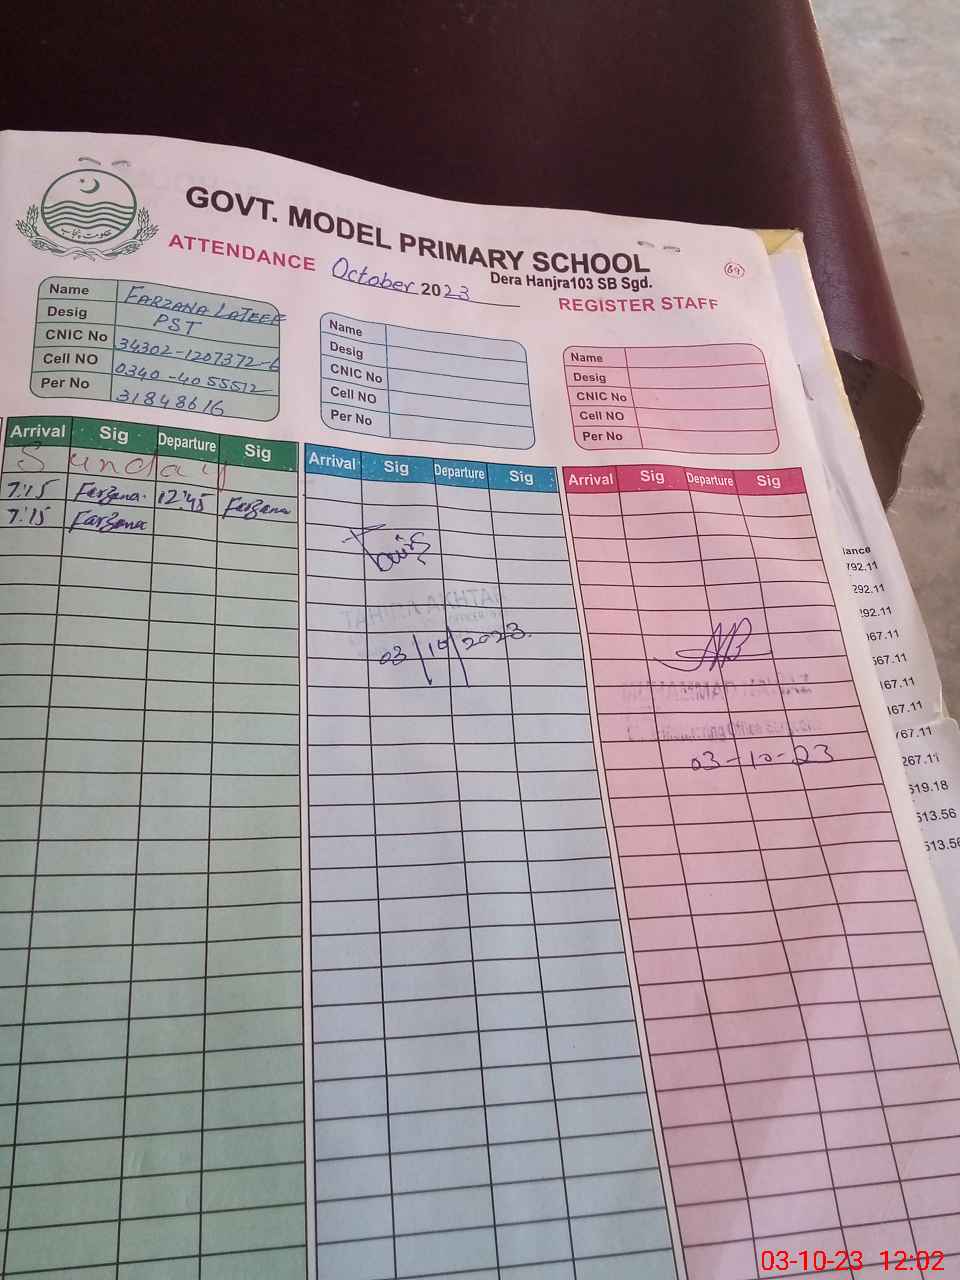 حکومت پنجاب
GOVT. MODEL PRIMARY SCHOOL
Dera Hanjra103 SB Sgd.
ATTENDANCE October 2023
REGISTER STAFF
69
Name FARZANA LATEEF
Desig PST
CNIC No 34302-1207372-6
Cell NO 0340-4055512
Per No 31848616
Name
Desig
CNIC No
Cell NO
Per No
Name
Desig
CNIC No
Cell NO
Per No
Arrival Sig Departure Sig
Sunday
7:15 Farzana 12:45 Farzana
7:15 Farzana
Arrival Sig Departure Sig
03/10/2023
Arrival Sig Departure Sig
03-10-23
lance
792.11
292.11
292.11
067.11
567.11
167.11
167.11
767.11
267.11
519.18
513.56
513.56
03-10-23 12:02